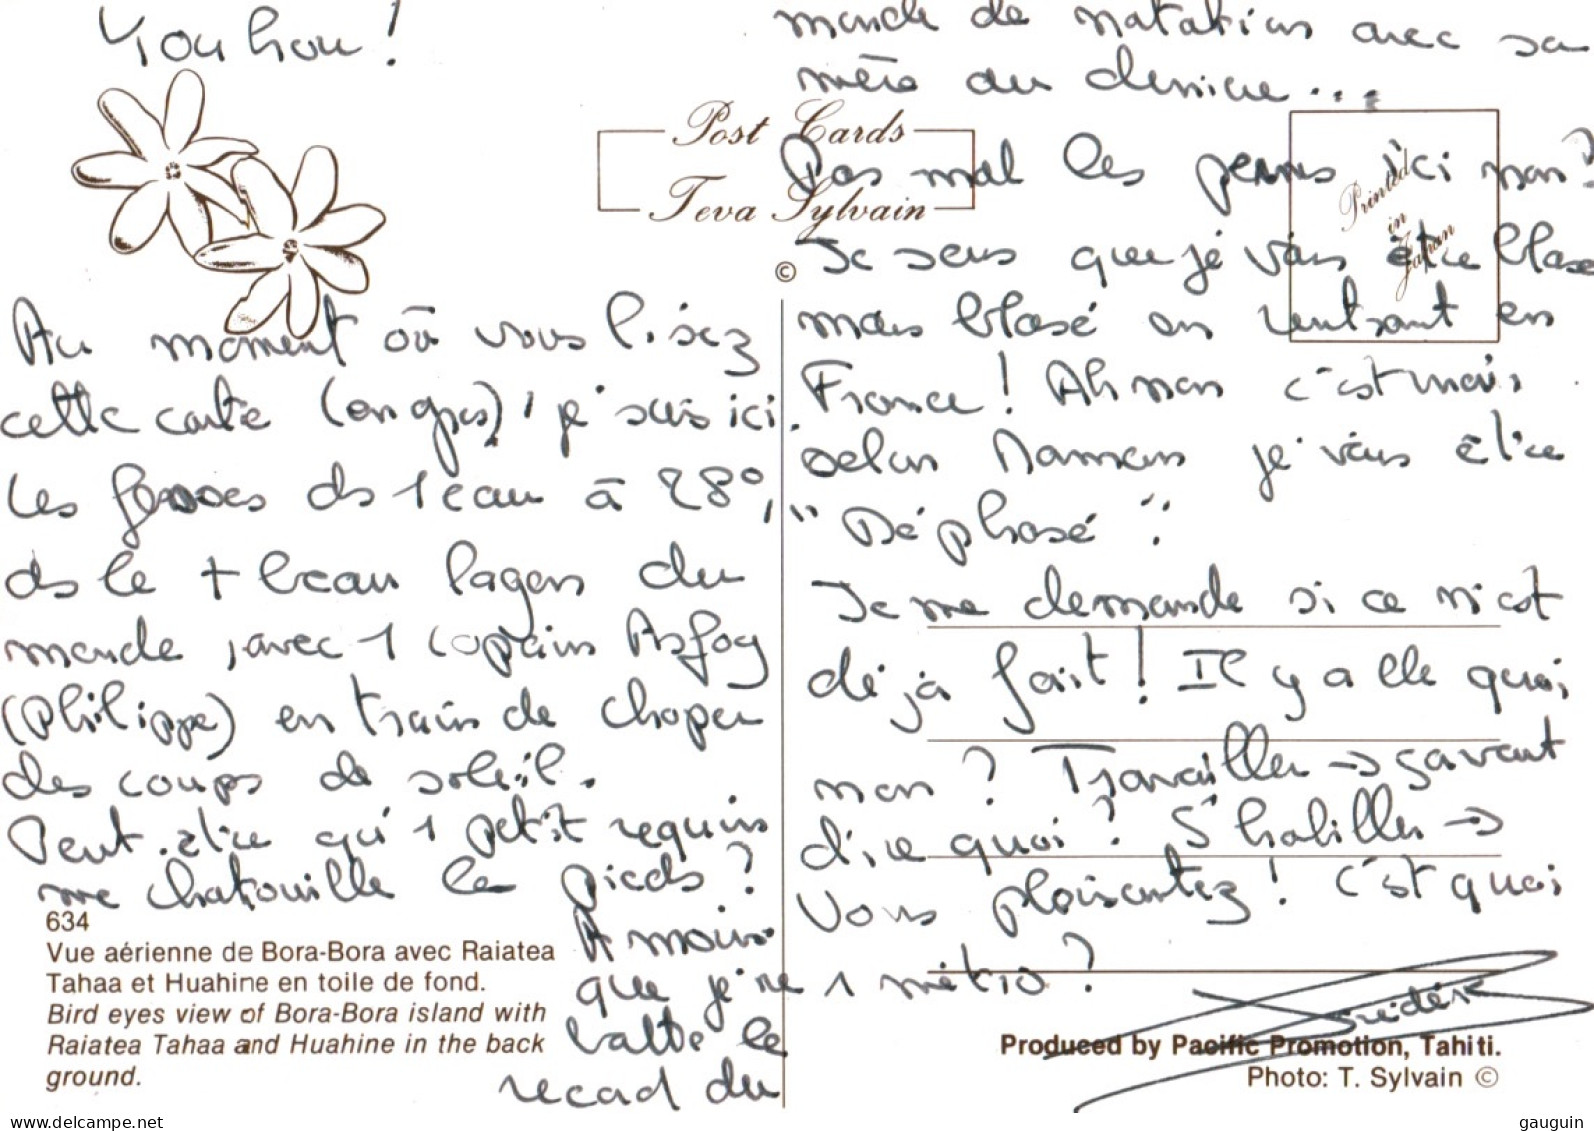 Youhou !
Au moment où vous lisez
cette carte (en gros), je suis ici.
Les fesses ds l'eau à 28°,
ds le + beau lagon du
monde, avec 1 copain Asfog
(Philippe) en train de choper
des coups de soleil.
Peut-être qu'1 petit requin
me chatouille les pieds ?
A moins
que je ne
batte le
record du
monde de natation avec sa
mère au derrière...
Pas mal les perms ici non ?
Je sens que je vais être blasé
mais blasé en rentrant en
France ! Ah non c'est mais
selon Maman je vais être
"Déphasé".
Je me demande si ce n'est
déjà fait ! Il y a de quoi
non ? Travailler → savent
dire quoi ? S'habiller →
Vous plaisantez ! C'est quoi
1 métro ?
Frédéric
Post Cards
Teva Sylvain
©
Printed
in
Japan
634
Vue aérienne de Bora-Bora avec Raiatea
Tahaa et Huahine en toile de fond.
Bird eyes view of Bora-Bora island with
Raiatea Tahaa and Huahine in the back
ground.
Produced by Pacific Promotion, Tahiti.
Photo: T. Sylvain ©
www.delcampe.net
gauguin